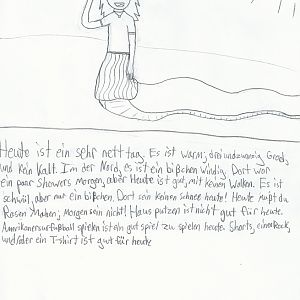 Heute ist ein sehr nett tag. Es ist warm; drei und zwanzig Grad,
und kein kalt. Im der Nord, es ist ein bißchen windig. Dort war
ein paar Showers morgen, aber Heute ist gut, mit keinen Wolken. Es ist
schwül, aber nut ein bißchen. Dort sein keinen schnee heute! Heute mußt du
Rasen Mahen; Morgen sein nicht! Haus putzen ist nicht gut für heute.
Amerikanersurfußball spielen ist ein gut spiel zu spielen heute. Shorts, einen Rock,
und/oder ein T-shirt ist gut für heute